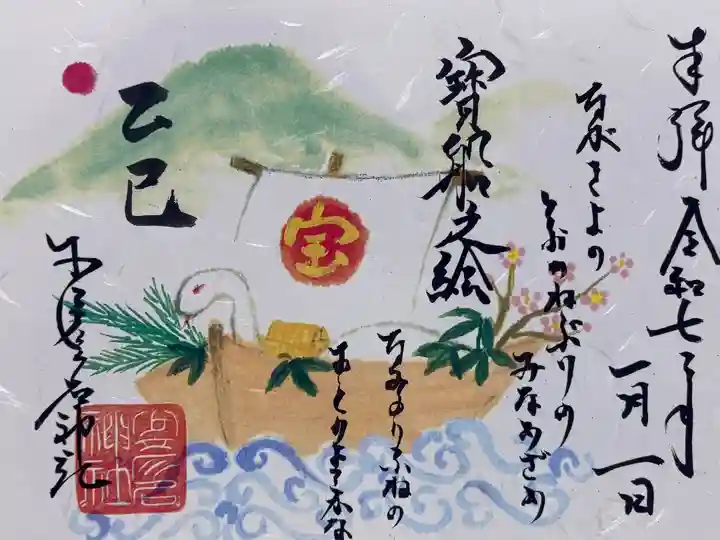 奉拝 令和七年
一月一日
ながきよの
とおのねぶりの
みなめざめ
なみのりふねの
おとのよきかな
寶船之絵
宝
乙巳